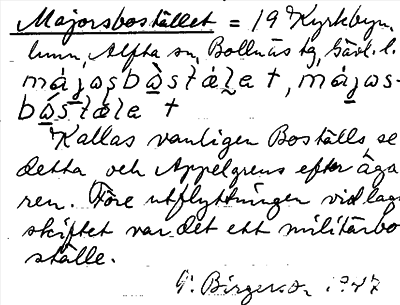 Majorsbostället = 19 Kyrkbyn,
lunn, Alfta sn, Bollnäs tg, Gävl. l.
májo̱sbò̱stǽla t, májo̱s-
bó̱stǽla t
Kallas vanligen Boställs, se
detta och Appelgrens efter äga
ren. Före utflyttningen vid laga
skiftet var det ett militärbo
ställe.
G. Birger